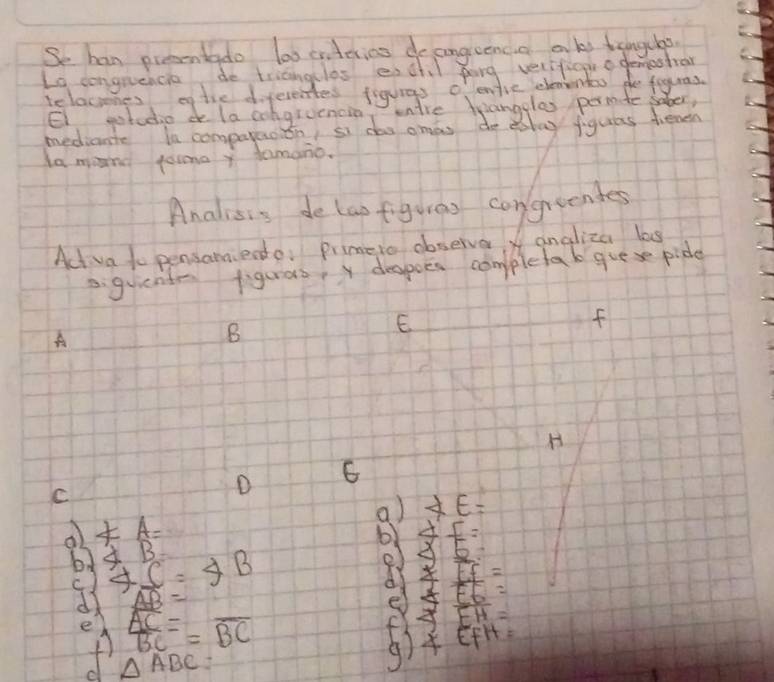 Se han presentado los criterios de congruencia en los triangulos.
La congruencia de triangulos es util para verificar o demostrar
relaciones entre diferentes figuras o entre elementos de figuras.
El estudio de la congruencia entre triangulos permite saber,
mediante la comparación, si dos o mas de estas figuras tienen
la misma forma y tamaño.
Analisis de las figuras congruentes
Activa tu pensamiento. Primero observa y analiza las
siguientes figuras, y despues completa lo que se pide
A B E F
H
C D G
a) ∡ A=
b) ∡ B
c) ∡ C = ∡ B
d) AB =
e) AC =
f) BC = BC
d △ ABC:
a) ∡ E=
b) ∡ F=
EF =
EG =
EH =
g) ∡ EFH=